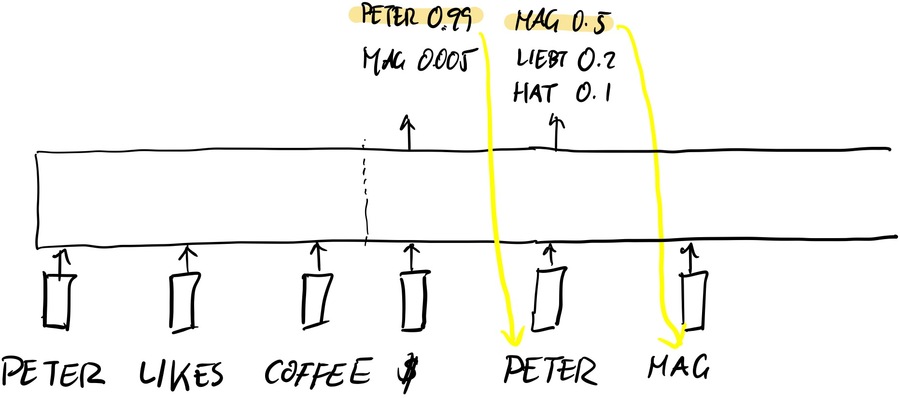 PETER 0.99
MAG 0.005
MAG 0.5
LIEBT 0.2
HAT 0.1
PETER LIKES COFFEE $ PETER MAG